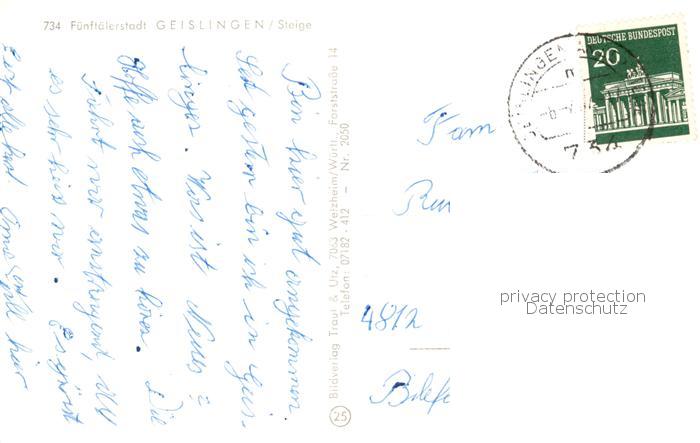 734 Fünftälerstadt GEISLINGEN/Steige
Bin hier gut angekommen.
Seit gestern bin ich in Geis-
lingen. Was ist Neues?
Hoffe auch etwas zu hören. Die
Fahrt war anstrengend, weil
es sehr heiss war. Es grüsst
Euch alle herzl. Oma
hier
Bildverlag Traut & Utz, 7063 Welzheim/Württ., Forststraße 14
Telefon: 07182 - 412 — Nr. 2050
25
DEUTSCHE BUNDESPOST
20
734
Fam
4812
Bilefe
privacy protection
Datenschutz